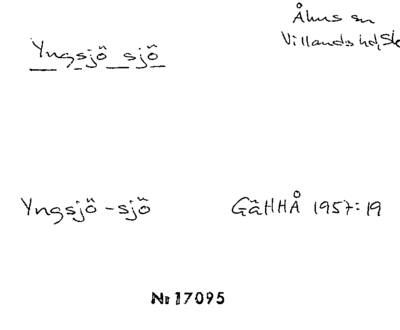 Åhus sn
Yngsjö sjö
Villands hd, Sk
Yngsjö - sjö
GäHHÅ 1957:19
Nr 17095